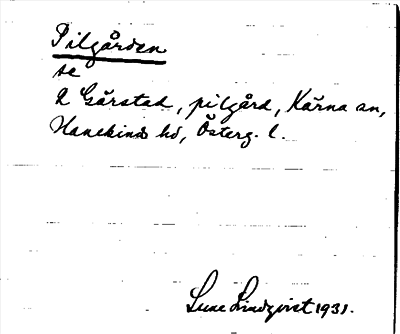 Pilgården
se
2 Gärstad, pilgård, Kärna sn,
Hanekinds hd, Österg. l.
Sune Lindqvist 1931.